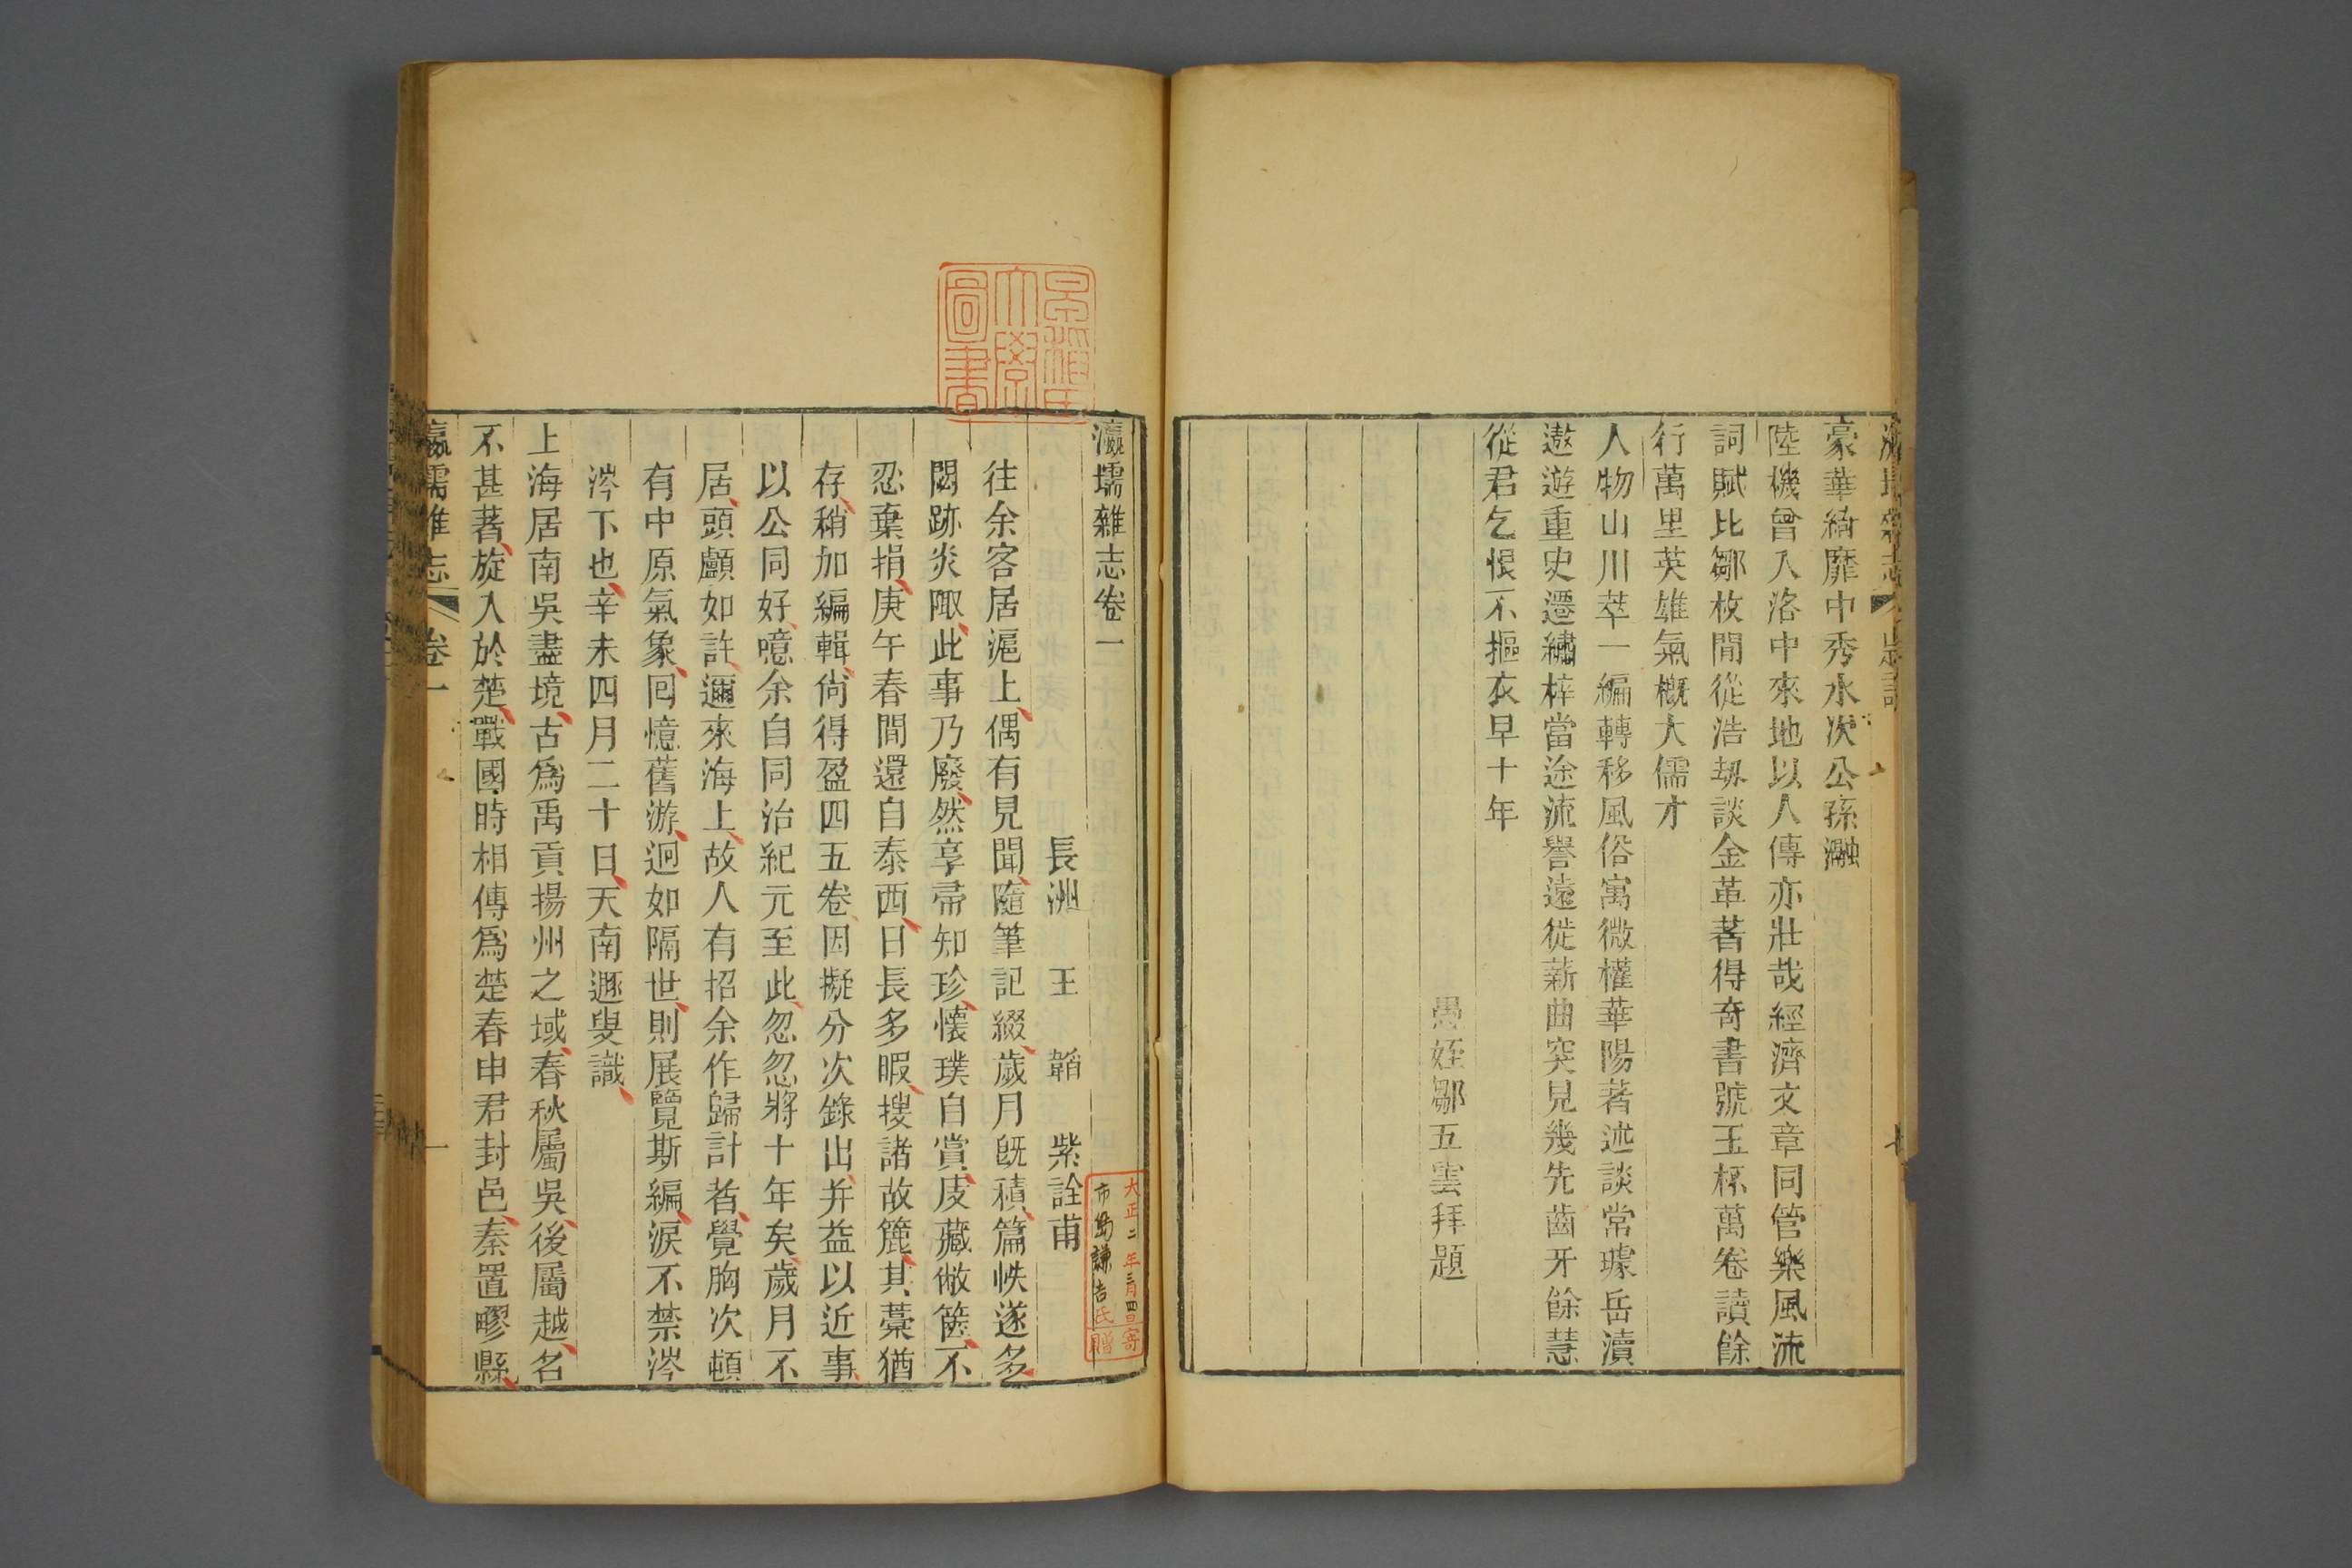 豪華綺靡中秀水次公孫瀜
陸機曾入洛中來地以人傳亦壯哉經濟文章同管樂風流
詞賦比鄒枚閒從浩刼談金革著得奇書號玉杯萬卷讀餘
行萬里英雄氣概大儒才
人物山川萃一編轉移風俗寓微權華陽著述談常璩岳瀆
遨遊重史遷繡梓當途流譽遠徙薪曲突見幾先齒牙餘慧
從君乞恨不摳衣早十年
愚姪鄒五雲拜題
早稻田大學圖書
瀛壖雜志卷一
長洲 王 韜 紫詮甫
大正二年三月四日寄贈
市島謙吉氏
往余客居滬上、偶有見聞、隨筆記綴、歲月旣積、篇帙遂多、
閼跡炎陬、此事乃廢、然享帚知珍、懷璞自賞、庋藏敝篋、不
忍棄捐、庚午春間還自泰西、日長多暇、搜諸故簏、其藁猶
存、稍加編輯、尙得盈四五卷、因擬分次錄出、幷益以近事、
以公同好、噫、余自同治紀元至此、忽忽將十年矣、歲月不
居、頭顱如許、邇來海上、故人有招余作歸計者、覺胸次頓
有中原氣象、回憶舊游、迥如隔世、則展覽斯編、淚不禁涔
涔下也、辛未四月二十日、天南遯叟識、
上海居南吳盡境、古爲禹貢揚州之域、春秋屬吳、後屬越、名
不甚著、旋入於楚、戰國時相傳爲楚春申君封邑、秦置疁縣、
瀛壖雜志 卷一 一